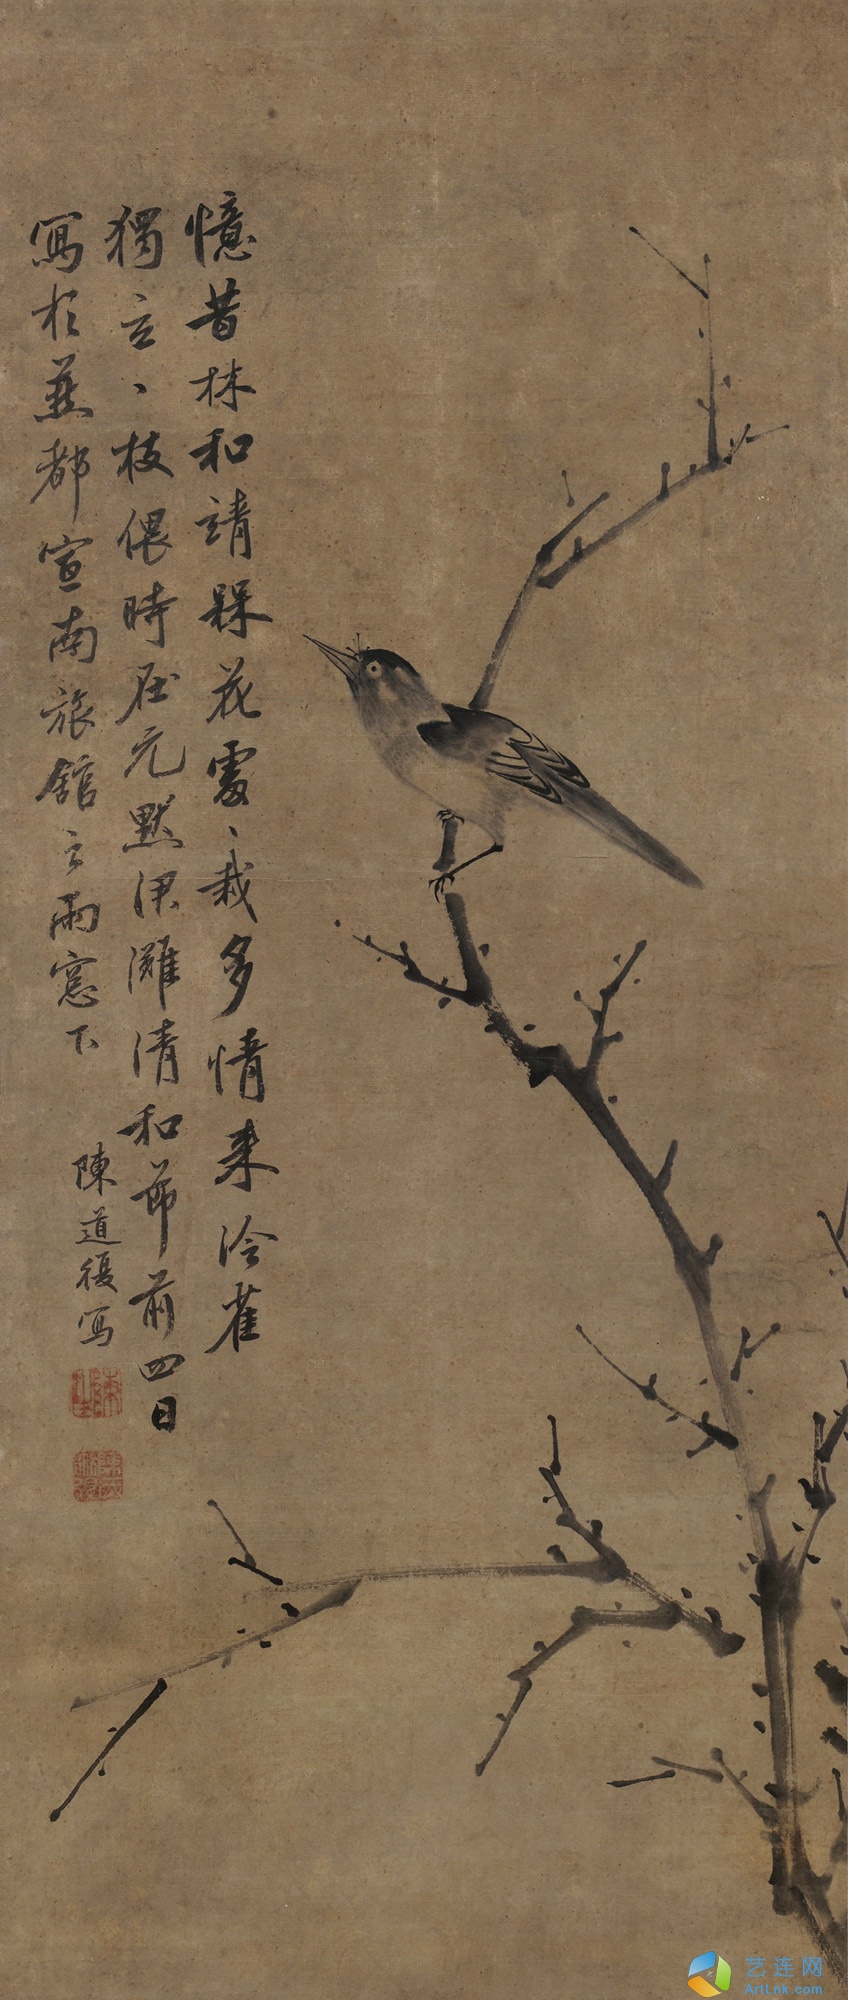 憶昔林和靖槑花處〻栽多情来冷雀
獨立〻枝偎時在元黓涒灘清和節前四日
寫於燕都宣南旅館之雨窻下
陳道復写
艺连网
ArtLnk.com